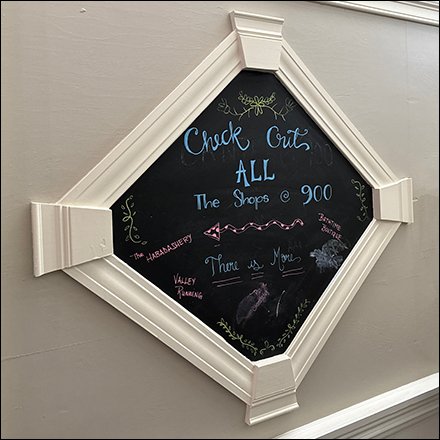 Check Out
ALL
The Shops @ 900
The HABADASHERY
BATHTIME
BOUTIQUE
There is More
VALLEY
RUNNING